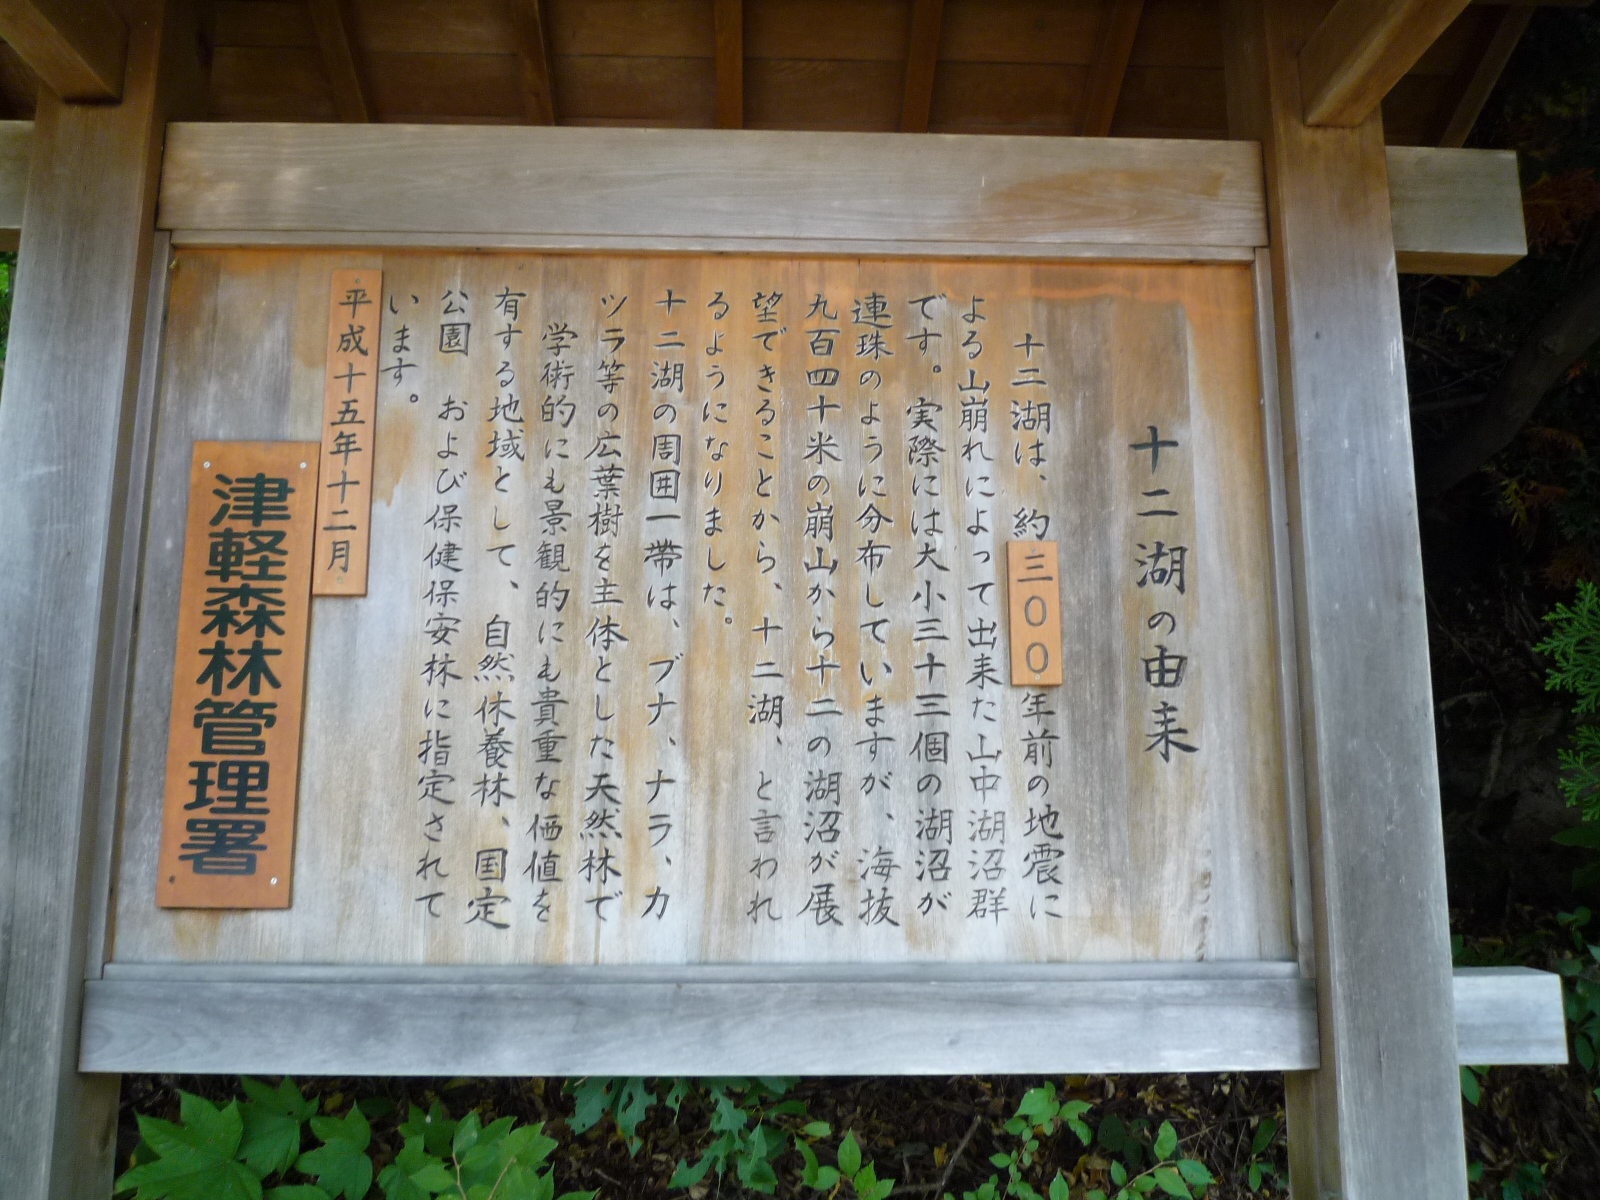 十二湖の由来
十二湖は、約三００年前の地震に
よる山崩れによって出来た山中湖沼群
です。実際には大小三十三個の湖沼が
連珠のように分布していますが、海抜
九百四十米の崩山から十二の湖沼が展
望できることから、十二湖、と言われ
るようになりました。
十二湖の周囲一帯は、ブナ、ナラ、カ
ツラ等の広葉樹を主体とした天然林で
学術的にも景観的にも貴重な価値を
有する地域として、自然休養林、国定
公園 および保健保安林に指定されて
います。
平成十五年十二月
津軽森林管理署